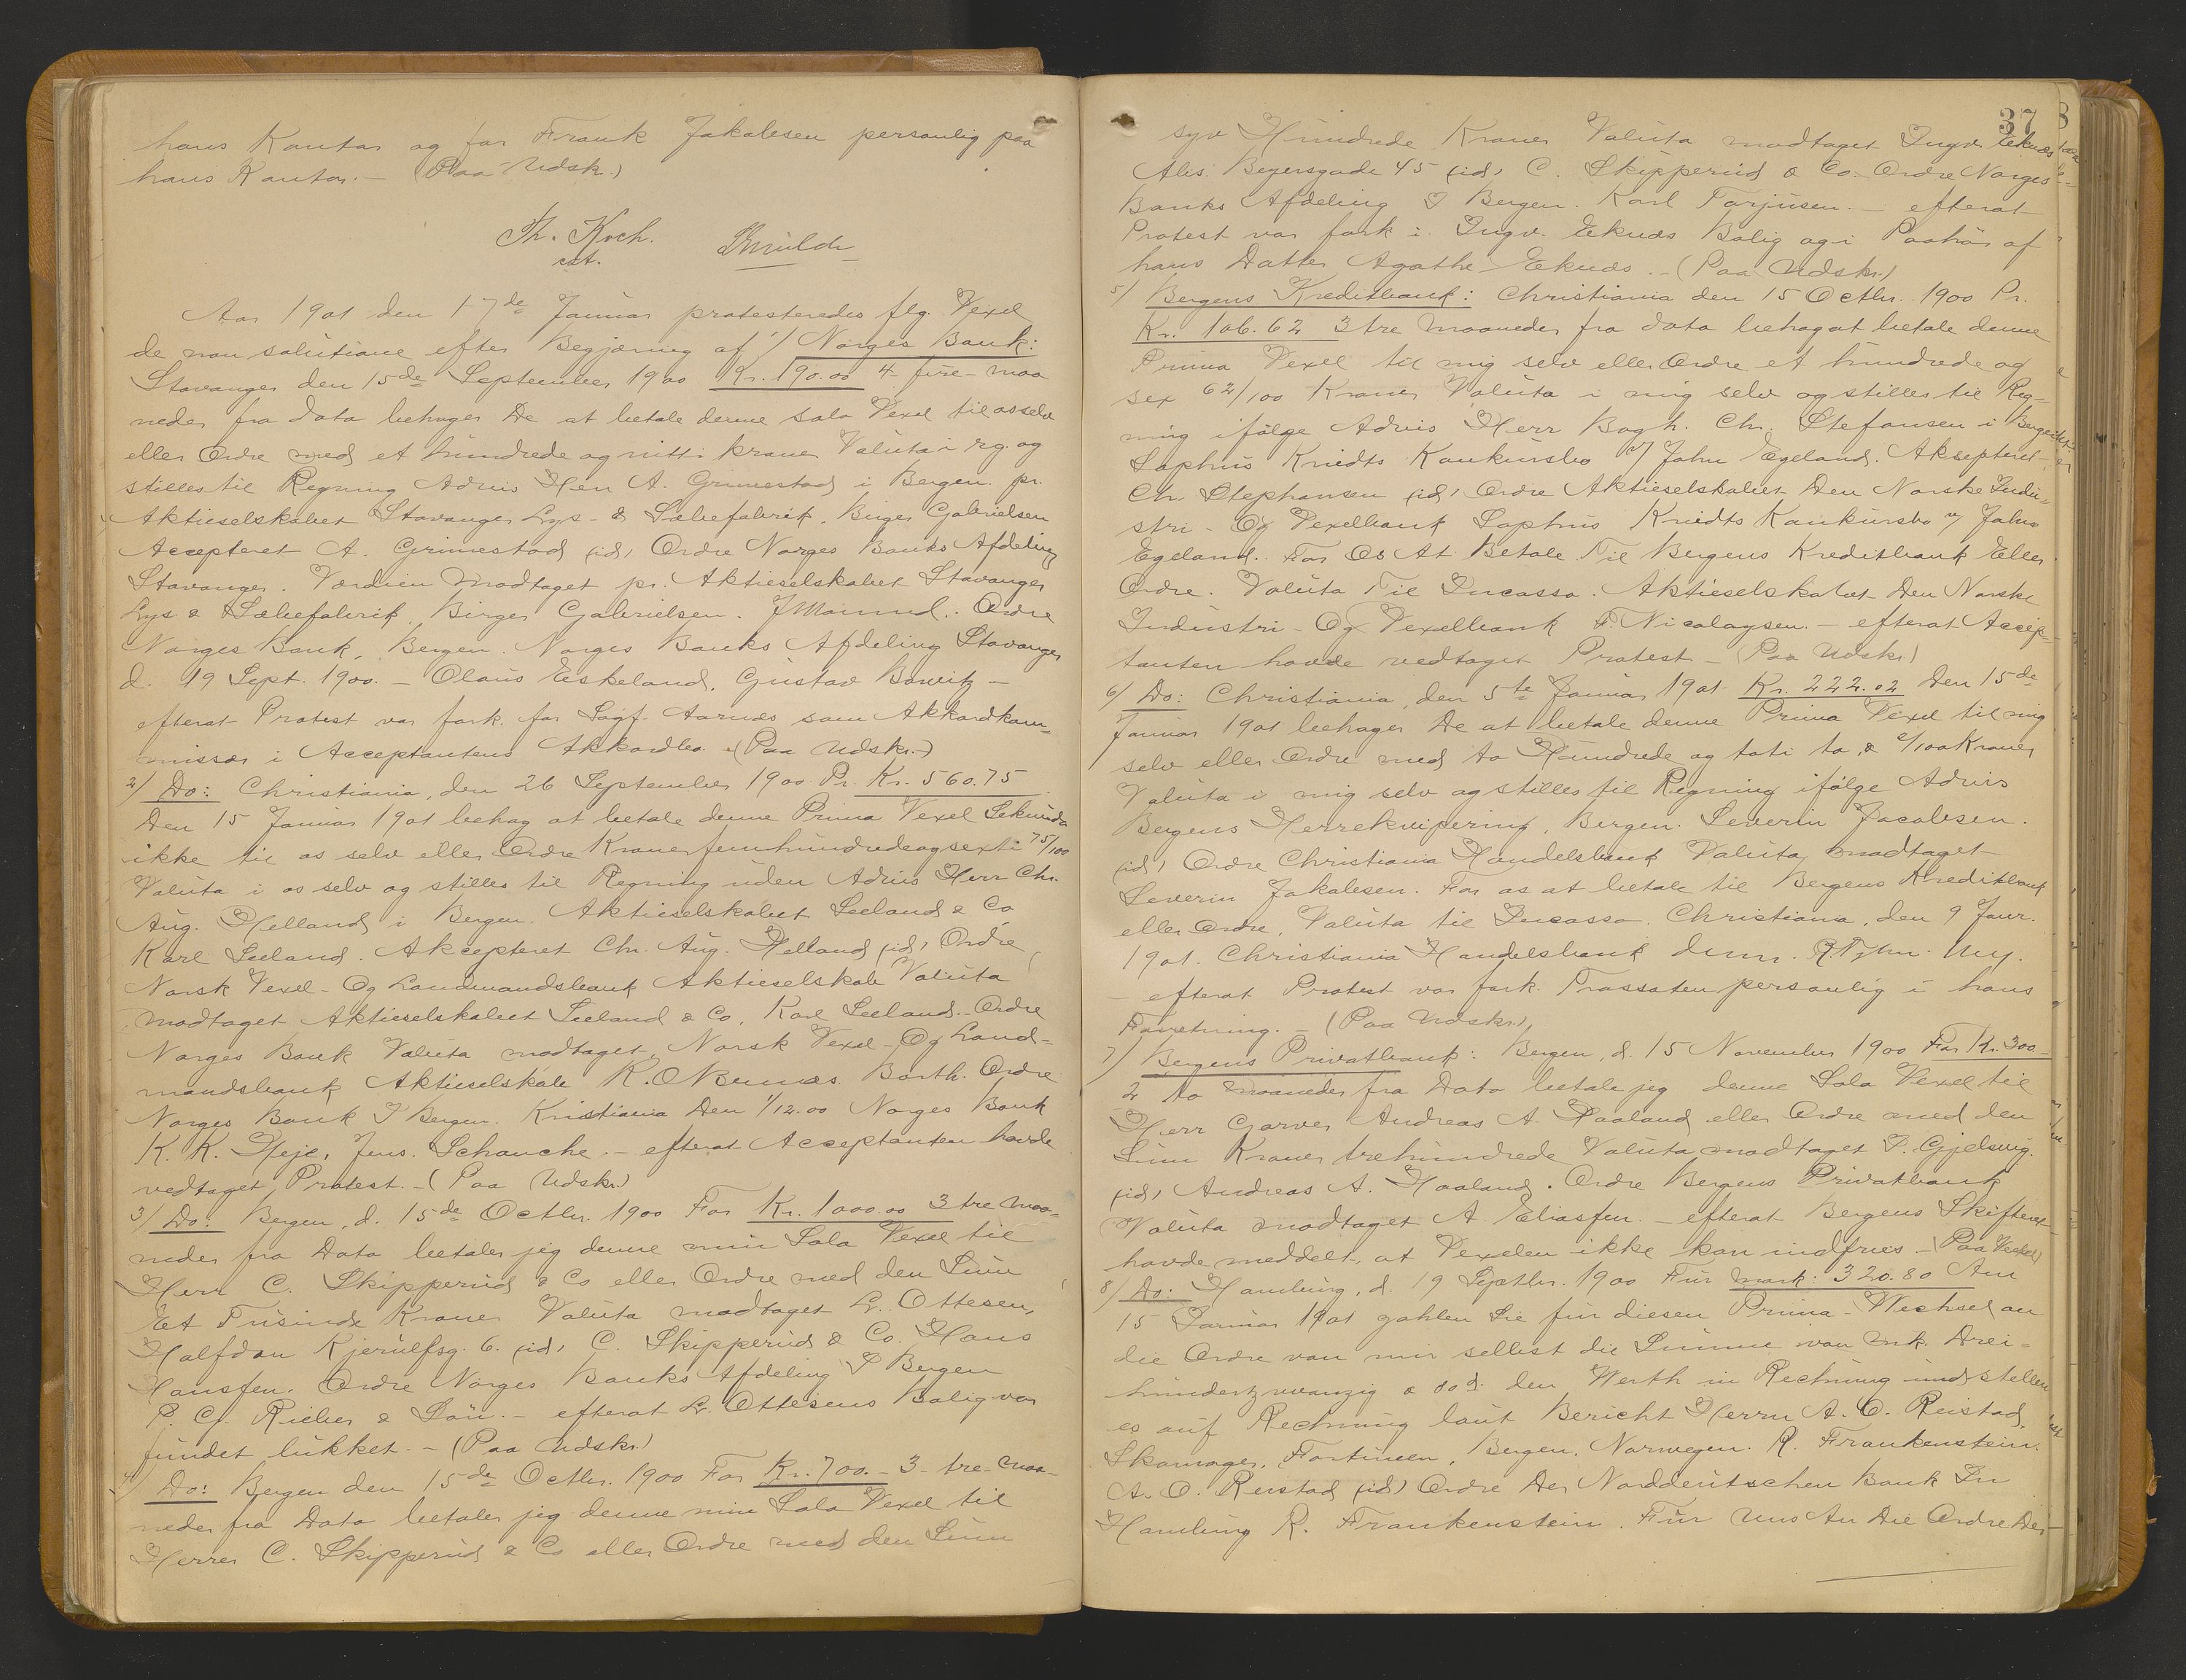 hans Kontor og for Frank Jakobsen personlig paa
hans Kontor. – (Paa Udsk.)
Th. Koch.
cst.
Aar 1901 den 17de Januar protesteredes flg. Vexel
de non solutione efter Begjæring af 1/ Norges Bank:
Stavanger den 15de September 1900 Kr. 190.00 4 – fire – maa
neder fra dato behager De at betale denne Sola Vexel til os selv
eller Ordre med et hundrede og nitti kroner Valuta i rg. og
stilles til Regning Advis Herr A. Grimestad i Bergen. pr.
Aktieselskabet Stavanger Lys- & Sæbefabrik, Birger Gabrielsen
Accepteret A. Grimestad (id) Ordre Norges Banks Afdeling
Stavanger. Værdien Modtaget pr. Aktieselskabet Stavanger
Lys & Sæbefabrik. Birger Gabrielsen. Ordre
Norges Bank, Bergen. Norges Banks Afdeling Stavanger
d. 19 Sept. 1900. – Olaus Eskeland. Gustav –
efterat Protest var fork. for Sagf. Aarnæs som Akkordkom-
missær i Acceptantens Akkordbo. (Paa Udskr.)
2/ Do: Christiania, den 26 September 1900 Pr. Kr. 560.75
Den 15 Januar 1901 behag at betale denne Prima Vexel Sekunda
ikke til os selv eller Ordre Kroner femhundredeogsexti 75/100
Valuta i os selv og stilles til Regning uden Advis Herr Chr.
Aug. Helland i Bergen. Aktieselskabet Seeland & Co
Karl Seeland. Akcepteret Chr. Aug. Helland (id) Ordre
Norsk Vexel- Og Landmandsbank Aktieselskab Valuta
modtaget Aktieselskabet Seeland & Co. Karl Seeland. – Ordre
Norges Bank Valuta modtaget. Norsk Vexel- Og Land-
mandsbank Aktieselskab K. O. Barth. Ordre
Norges Bank I Bergen. Kristiania Den 1/12.00 Norges Bank
K. K. Heje, Jens. Schanche. – efterat Acceptanten havde
vedtaget Protest. – (Paa Udskr.)
3/ Do: Bergen, d. 15de Octbr. 1900 For Kr. 1000.00 3 tre Maa-
neder fra Dato betaler jeg denne min Sola Vexel til
Herr C. Skipperud & Co eller Ordre med den Sum
Et Tusinde Kroner Valuta modtaget L. Ottesen,
Halfdan Kjerulfsg. 6. (id) C. Skipperud & Co. Hans
Hansen. Ordre Norges Banks Afdeling I Bergen
P. G. Rieber & Søn. – efterat L. Ottesens Bolig var
fundet lukket. – (Paa Udskr.)
4/ Do: Bergen den 15de Octbr. 1900 For Kr. 700. – 3 – tre Maa-
neder fra Dato betaler jeg denne min Sola Vexel til
Herrer C. Skipperud & Co eller Ordre med den Sum
37
syv Hundrede Kroner Valuta modtaget Ingv. Eknæs
Abs. Beyersgade 45 (id) C. Skipperud & Co. Ordre Norges
Banks Afdeling I Bergen. Karl Torjusen. – efterat
Protest var fork i Ingv. Eknæs Bolig og i Paahør af
hans Datter Agathe Eknæs. – (Paa Udskr.)
5/ Bergens Kreditbank: Christiania den 15 Octbr. 1900 Pr.
Kr. 106.62 3 tre Maaneder fra dato behag at betale denne
Prima Vexel til mig selv eller Ordre et hundrede og
sex 62/100 Kroner Valuta i mig selv og stilles til Reg-
ning ifølge Advis Herr Bogh. Chr. Stefansen i Bergen
Sophus Kriedts Konkursbo v/ John Egeland. Aksepteret
Ch. Stephansen (id) Ordre Aktieselskabet Den Norske Indu-
stri- Og Vexelbank Sophus Kriedts Konkursbo v/ John
Egeland. For Os At Betale Til Bergens Kreditbank Eller
Ordre. Valuta Til Incasso. Aktieselskabet Den Norske
Industri- Og Vexelbank F. Nicolaysen. – efterat Accep-
tanten havde vedtaget Protest – (Paa Udskr.)
6/ Do: Christiania, den 5te Januar 1901 Kr. 222.02 Den 15de
Januar 1901 behager De at betale denne Prima Vexel til mig
selv eller Ordre med to Hundrede og toti to & 2/100 Kroner
Valuta i mig selv og stilles til Regning ifølge Advis
Bergens Herrekvipering, Bergen. Severin Jacobsen.
(id) Ordre Christiania Handelsbank Valuta modtaget
Severin Jakobsen. For os at betale til Bergens Kreditbank
eller Ordre, Valuta til Incasso. Christiania, den 9 Janr.
1901. Christiania Handelsbank
– efterat Protest var fork. Trassaten personlig i hans
Forretning. – (Paa Udskr.)
7/ Bergens Privatbank: Bergen, d. 15 November 1900 For Kr. 300 –
2 to Maaneder fra Dato betaler jeg denne Sola Vexel til
Herr Garver Andreas A. Haaland eller Ordre med den
Sum Kroner trehundrede Valuta modtaget P. Gjelsvig.
(id) Andreas A. Haaland. Ordre Bergens Privatbank
Valuta modtaget A. Eliassen. – efterat Bergens Skifteret
havde meddelt, at Vexelen ikke kan indfries. – (Paa Vexel)
8/ Do: Hamburg, d. 19 Septbr. 1900 Für Mark: 320.80 Am
15 Januar 1901 zahlen Sie für diesen Prima-Wechsel an
die Ordre von mir selbst die Summe von Mk. Drei-
hundertzwanzig & 80 d. den Werth in Rechnung und stellen
es auf Rechnung laut Bericht Herrn A. O. Reistad,
Skomager, Fortunen, Bergen, Norwegen. R. Frankenstein.
A. O. Reistad (id) Ordre Der Norddeutschen Bank In
Hamburg R. Frankenstein. Für Uns An Die Ordre Der